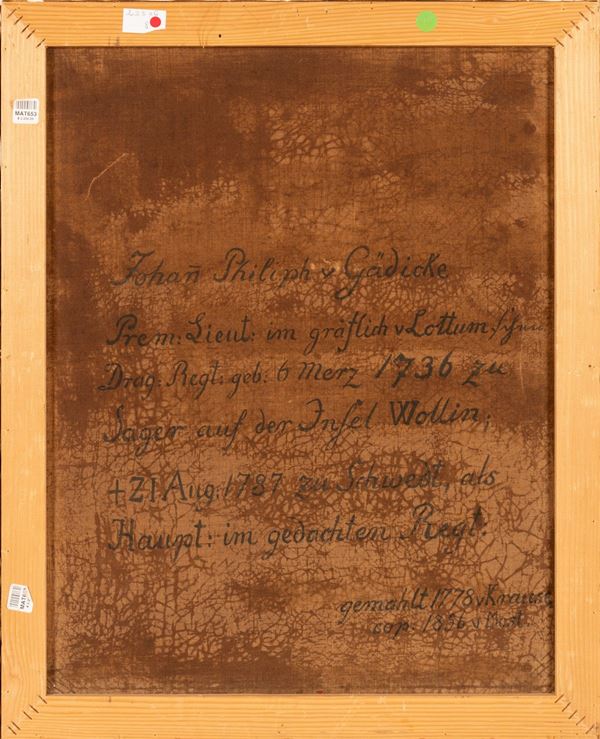 MAT653
Johan̅ Philiph v Gädicke
Prem: Lieut: im gräflich v Lottum,
Drag: Regt: geb: 6 Merz 1736 zu
Sager auf der Insel Wollin;
+ 21 Aug: 1787 zu Schwedt, als
Haupt: im gedachten Regt:
gemahlt 1778 v Krause
cop: 1856 v Most.